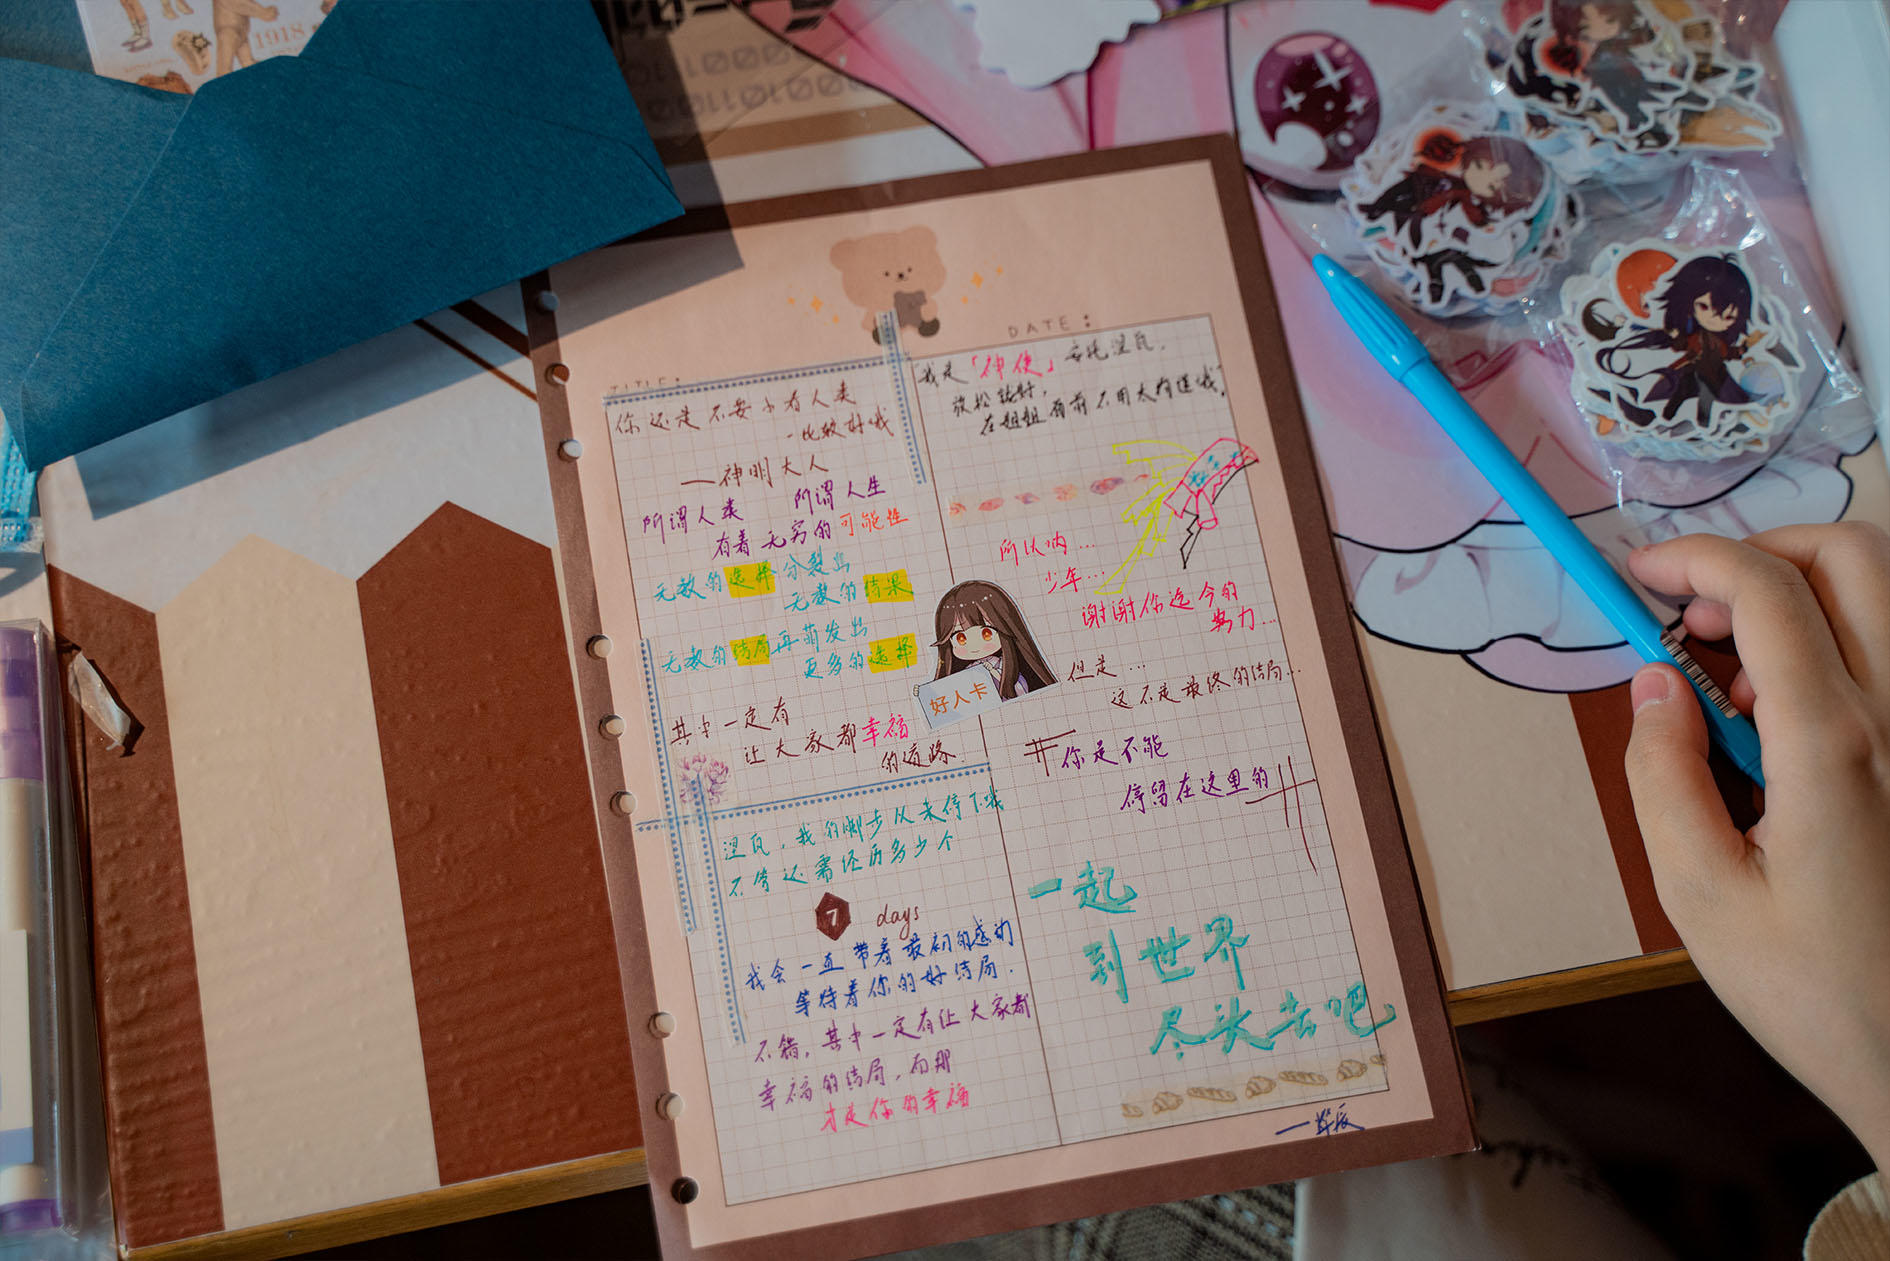 1918
TITLE:
DATE:
你还是不要小看人类
比较好哦
——神明大人
所谓人类 所谓人生
有着无穷的可能性
无数的选择分裂出
无数的结果
无数的结局再萌发出
更多的选择
其中一定有
让大家都幸福
的道路.
涅瓦，我的脚步从未停下哦
不管还需经历多少个
7 days
我会一直带着最初的感动
等待着你的好结局.
不错，其中一定有让大家都
幸福的结局，而那
才是你的幸福
"我是「神使」安托涅瓦.
放松就好，
在姐姐面前不用太有道哦"
好人卡
所以呐...
少年...
谢谢你迄今的
努力...
但是...
这不是最终的结局...
你是不能
停留在这里的
一起
到世界
尽头去吧